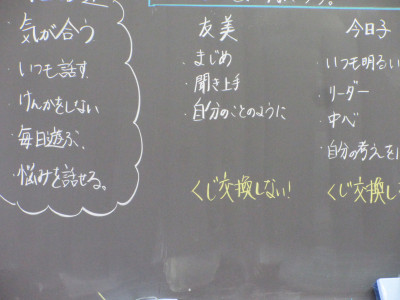 気が合う
・いつも話す
・けんかをしない
・毎日遊ぶ。
・悩みを話せる。
友美
・まじめ
・聞き上手
・自分のことのように
くじ交換しない!
今日子
・いつも明るい
・リーダー
・中べ
・自分の考えを
くじ交換し